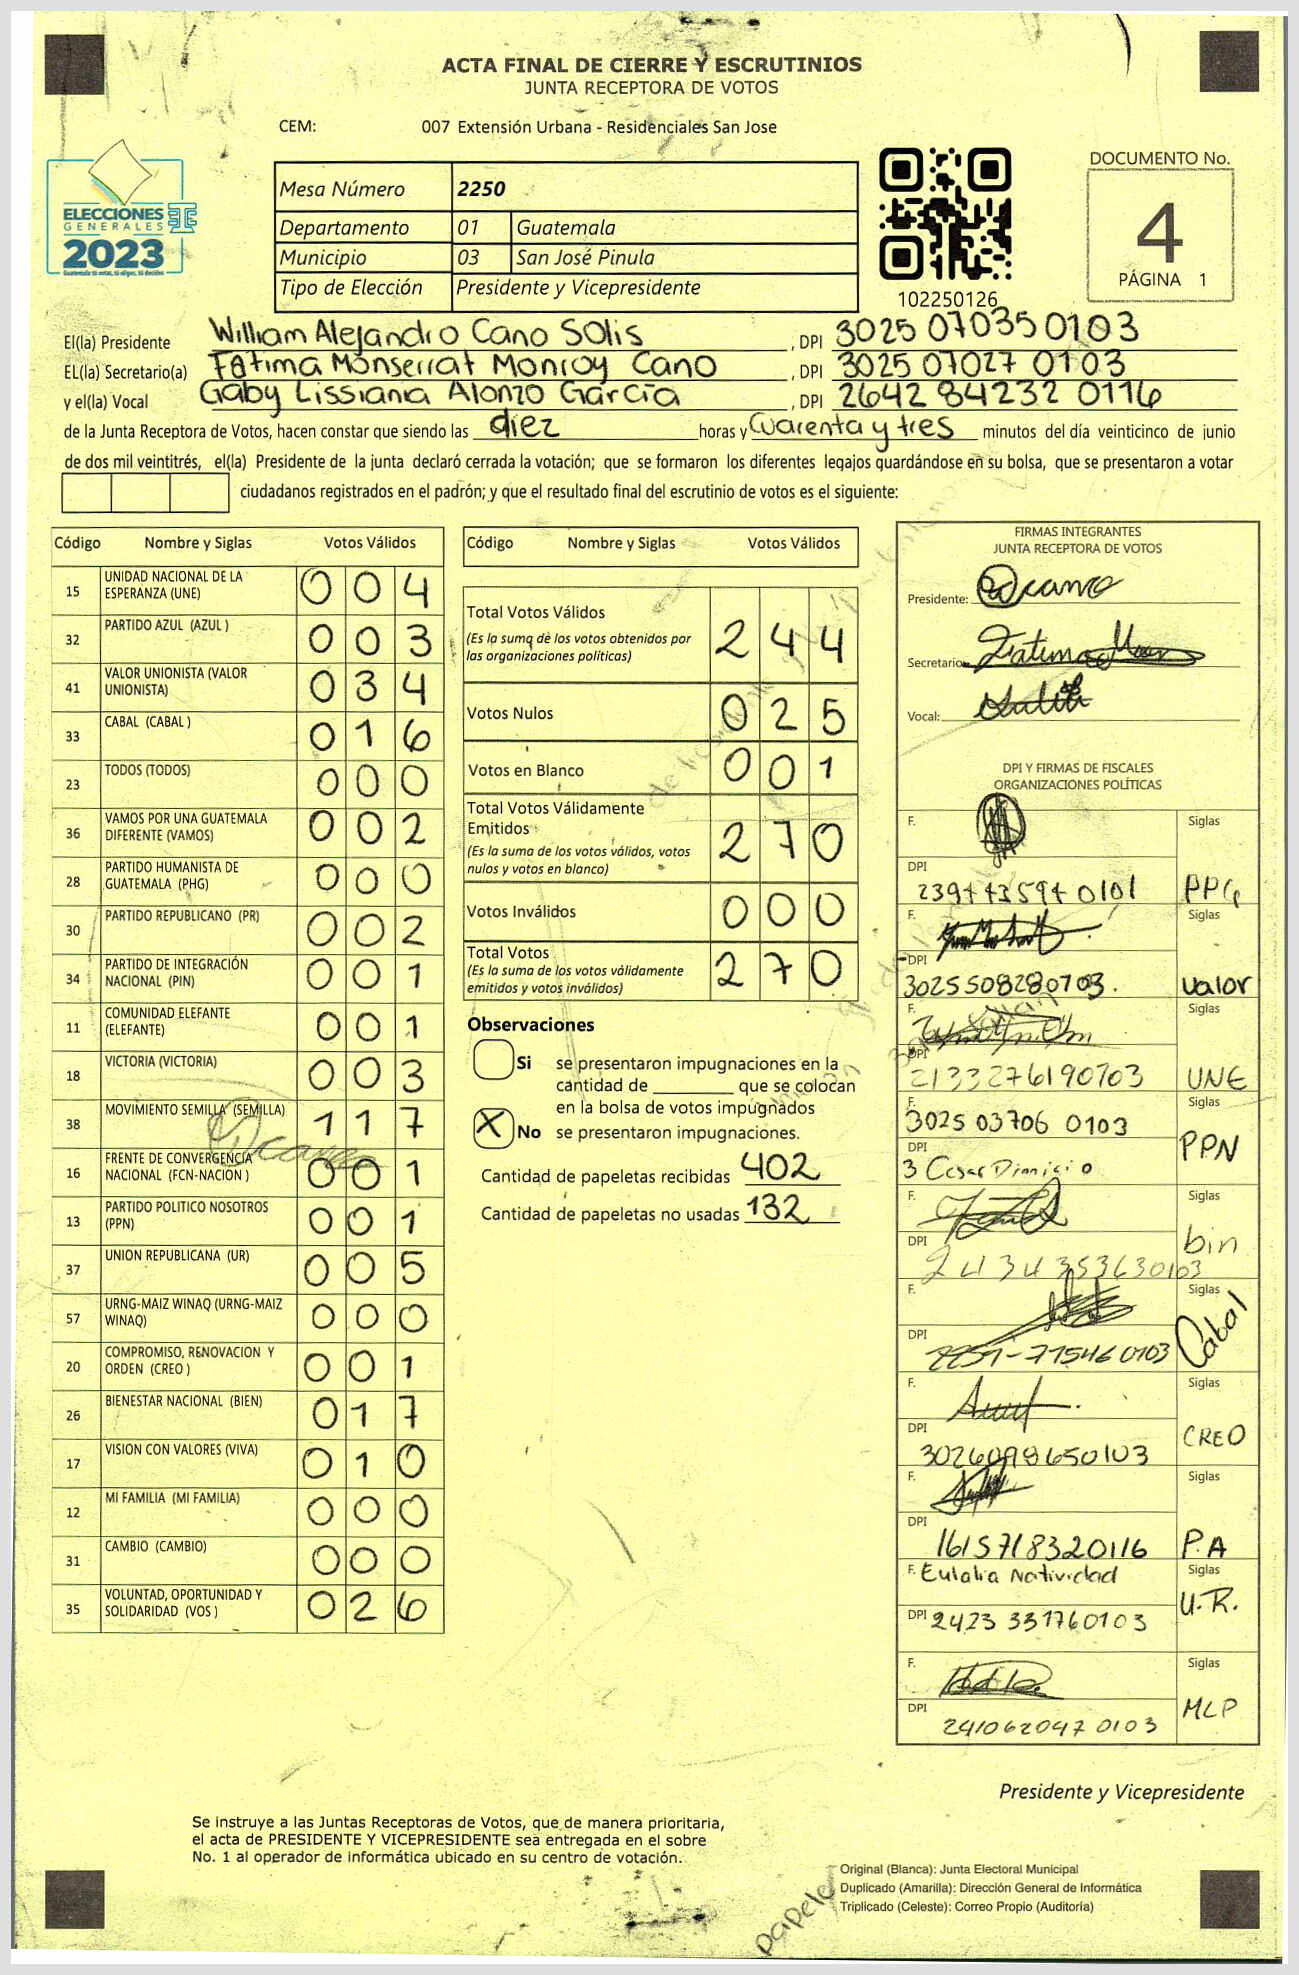 ACTA FINAL DE CIERRE Y ESCRUTINIOS
JUNTA RECEPTORA DE VOTOS
CEM: 007 Extensión Urbana - Residenciales San Jose
ELECCIONES
GENERALES
2023
Guatemala tú votas, tú eliges, tú decides
Mesa Número 2250
Departamento 01 Guatemala
Municipio 03 San José Pinula
Tipo de Elección Presidente y Vicepresidente
102250126
DOCUMENTO No.
4
PÁGINA 1
El(la) Presidente William Alejandro Cano Solis, DPI 3025 07035 0103
EL(la) Secretario(a) Fátima Monserrat Monroy Cano, DPI 3025 07027 0103
y el(la) Vocal Gaby Lissiania Alonzo García, DPI 2642 84232 0116
de la Junta Receptora de Votos, hacen constar que siendo las diez horas y Cuarenta y tres minutos del día veinticinco de junio
de dos mil veintitrés, el(la) Presidente de la junta declaró cerrada la votación; que se formaron los diferentes legajos guardándose en su bolsa, que se presentaron a votar
ciudadanos registrados en el padrón; y que el resultado final del escrutinio de votos es el siguiente:
Código Nombre y Siglas Votos Válidos
15 UNIDAD NACIONAL DE LA ESPERANZA (UNE) 0 0 4
32 PARTIDO AZUL (AZUL ) 0 0 3
41 VALOR UNIONISTA (VALOR UNIONISTA) 0 3 4
33 CABAL (CABAL ) 0 1 6
23 TODOS (TODOS) 0 0 0
36 VAMOS POR UNA GUATEMALA DIFERENTE (VAMOS) 0 0 2
28 PARTIDO HUMANISTA DE GUATEMALA (PHG) 0 0 0
30 PARTIDO REPUBLICANO (PR) 0 0 2
34 PARTIDO DE INTEGRACIÓN NACIONAL (PIN) 0 0 1
11 COMUNIDAD ELEFANTE (ELEFANTE) 0 0 1
18 VICTORIA (VICTORIA) 0 0 3
38 MOVIMIENTO SEMILLA (SEMILLA) 1 1 7
16 FRENTE DE CONVERGENCIA NACIONAL (FCN-NACION ) 0 0 1
13 PARTIDO POLITICO NOSOTROS (PPN) 0 0 1
37 UNION REPUBLICANA (UR) 0 0 5
57 URNG-MAIZ WINAQ (URNG-MAIZ WINAQ) 0 0 0
20 COMPROMISO, RENOVACION Y ORDEN (CREO ) 0 0 1
26 BIENESTAR NACIONAL (BIEN) 0 1 7
17 VISION CON VALORES (VIVA) 0 1 0
12 MI FAMILIA (MI FAMILIA) 0 0 0
31 CAMBIO (CAMBIO) 0 0 0
35 VOLUNTAD, OPORTUNIDAD Y SOLIDARIDAD (VOS ) 0 2 6
Código Nombre y Siglas Votos Válidos
Total Votos Válidos 2 4 4
(Es la suma de los votos obtenidos por
las organizaciones políticas)
Votos Nulos 0 2 5
Votos en Blanco 0 0 1
Total Votos Válidamente
Emitidos 2 7 0
(Es la suma de los votos válidos, votos
nulos y votos en blanco)
Votos Inválidos 0 0 0
Total Votos 2 7 0
(Es la suma de los votos válidamente
emitidos y votos inválidos)
Observaciones
Si se presentaron impugnaciones en la
cantidad de ________ que se colocan
en la bolsa de votos impugnados
X No se presentaron impugnaciones.
Cantidad de papeletas recibidas 402
Cantidad de papeletas no usadas 132
FIRMAS INTEGRANTES
JUNTA RECEPTORA DE VOTOS
Presidente:
Secretario:
Vocal:
DPI Y FIRMAS DE FISCALES
ORGANIZACIONES POLÍTICAS
F. Siglas
DPI
F. Siglas
DPI 3025508280703. Valor
F. Siglas
DPI 2133276190703 UNE
F. 3025 03706 0103 Siglas
DPI PPN
F. Siglas
DPI 2434353630103 bin
F. Siglas
DPI Cabal
F. Siglas
DPI 3026098650103 CREO
F. Siglas
DPI 1615718320116 P.A
F. Eulalia Natividad Siglas
DPI 2423 331760103 U.R.
F. Siglas
DPI 241062047 0103 MLP
Presidente y Vicepresidente
Se instruye a las Juntas Receptoras de Votos, que de manera prioritaria,
el acta de PRESIDENTE Y VICEPRESIDENTE sea entregada en el sobre
No. 1 al operador de informática ubicado en su centro de votación.
Original (Blanca): Junta Electoral Municipal
Duplicado (Amarilla): Dirección General de Informática
Triplicado (Celeste): Correo Propio (Auditoría)